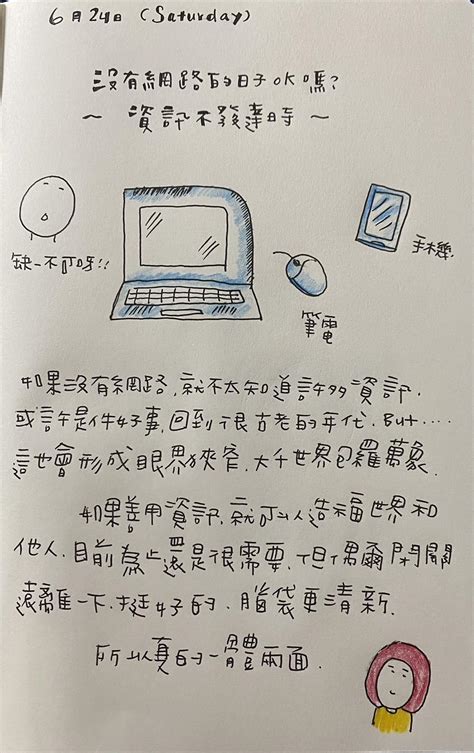 6月24日 (Saturday)
沒有網路的日子OK嗎?
~ 資訊不發達時 ~
手機
缺一不可呀!!
筆電
如果沒有網路,就不太知道許多資訊,
或許是件好事,回到很古老的年代,But....
這也會形成眼界狹窄,大千世界包羅萬象.
如果善用資訊,就可以造福世界和
他人,目前為止還是很需要,但偶爾關關
遠離一下,挺好的,腦袋更清新.
所以真的一體兩面.